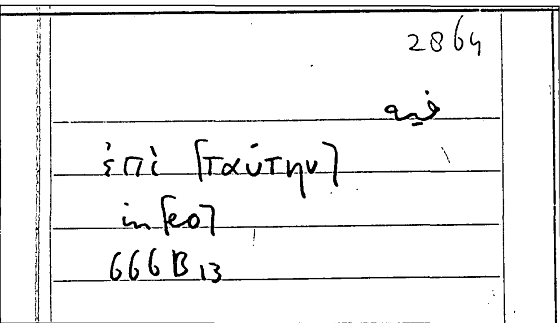 2864
فيه
ἐπὶ [ταύτην]
in [eo]
666B13